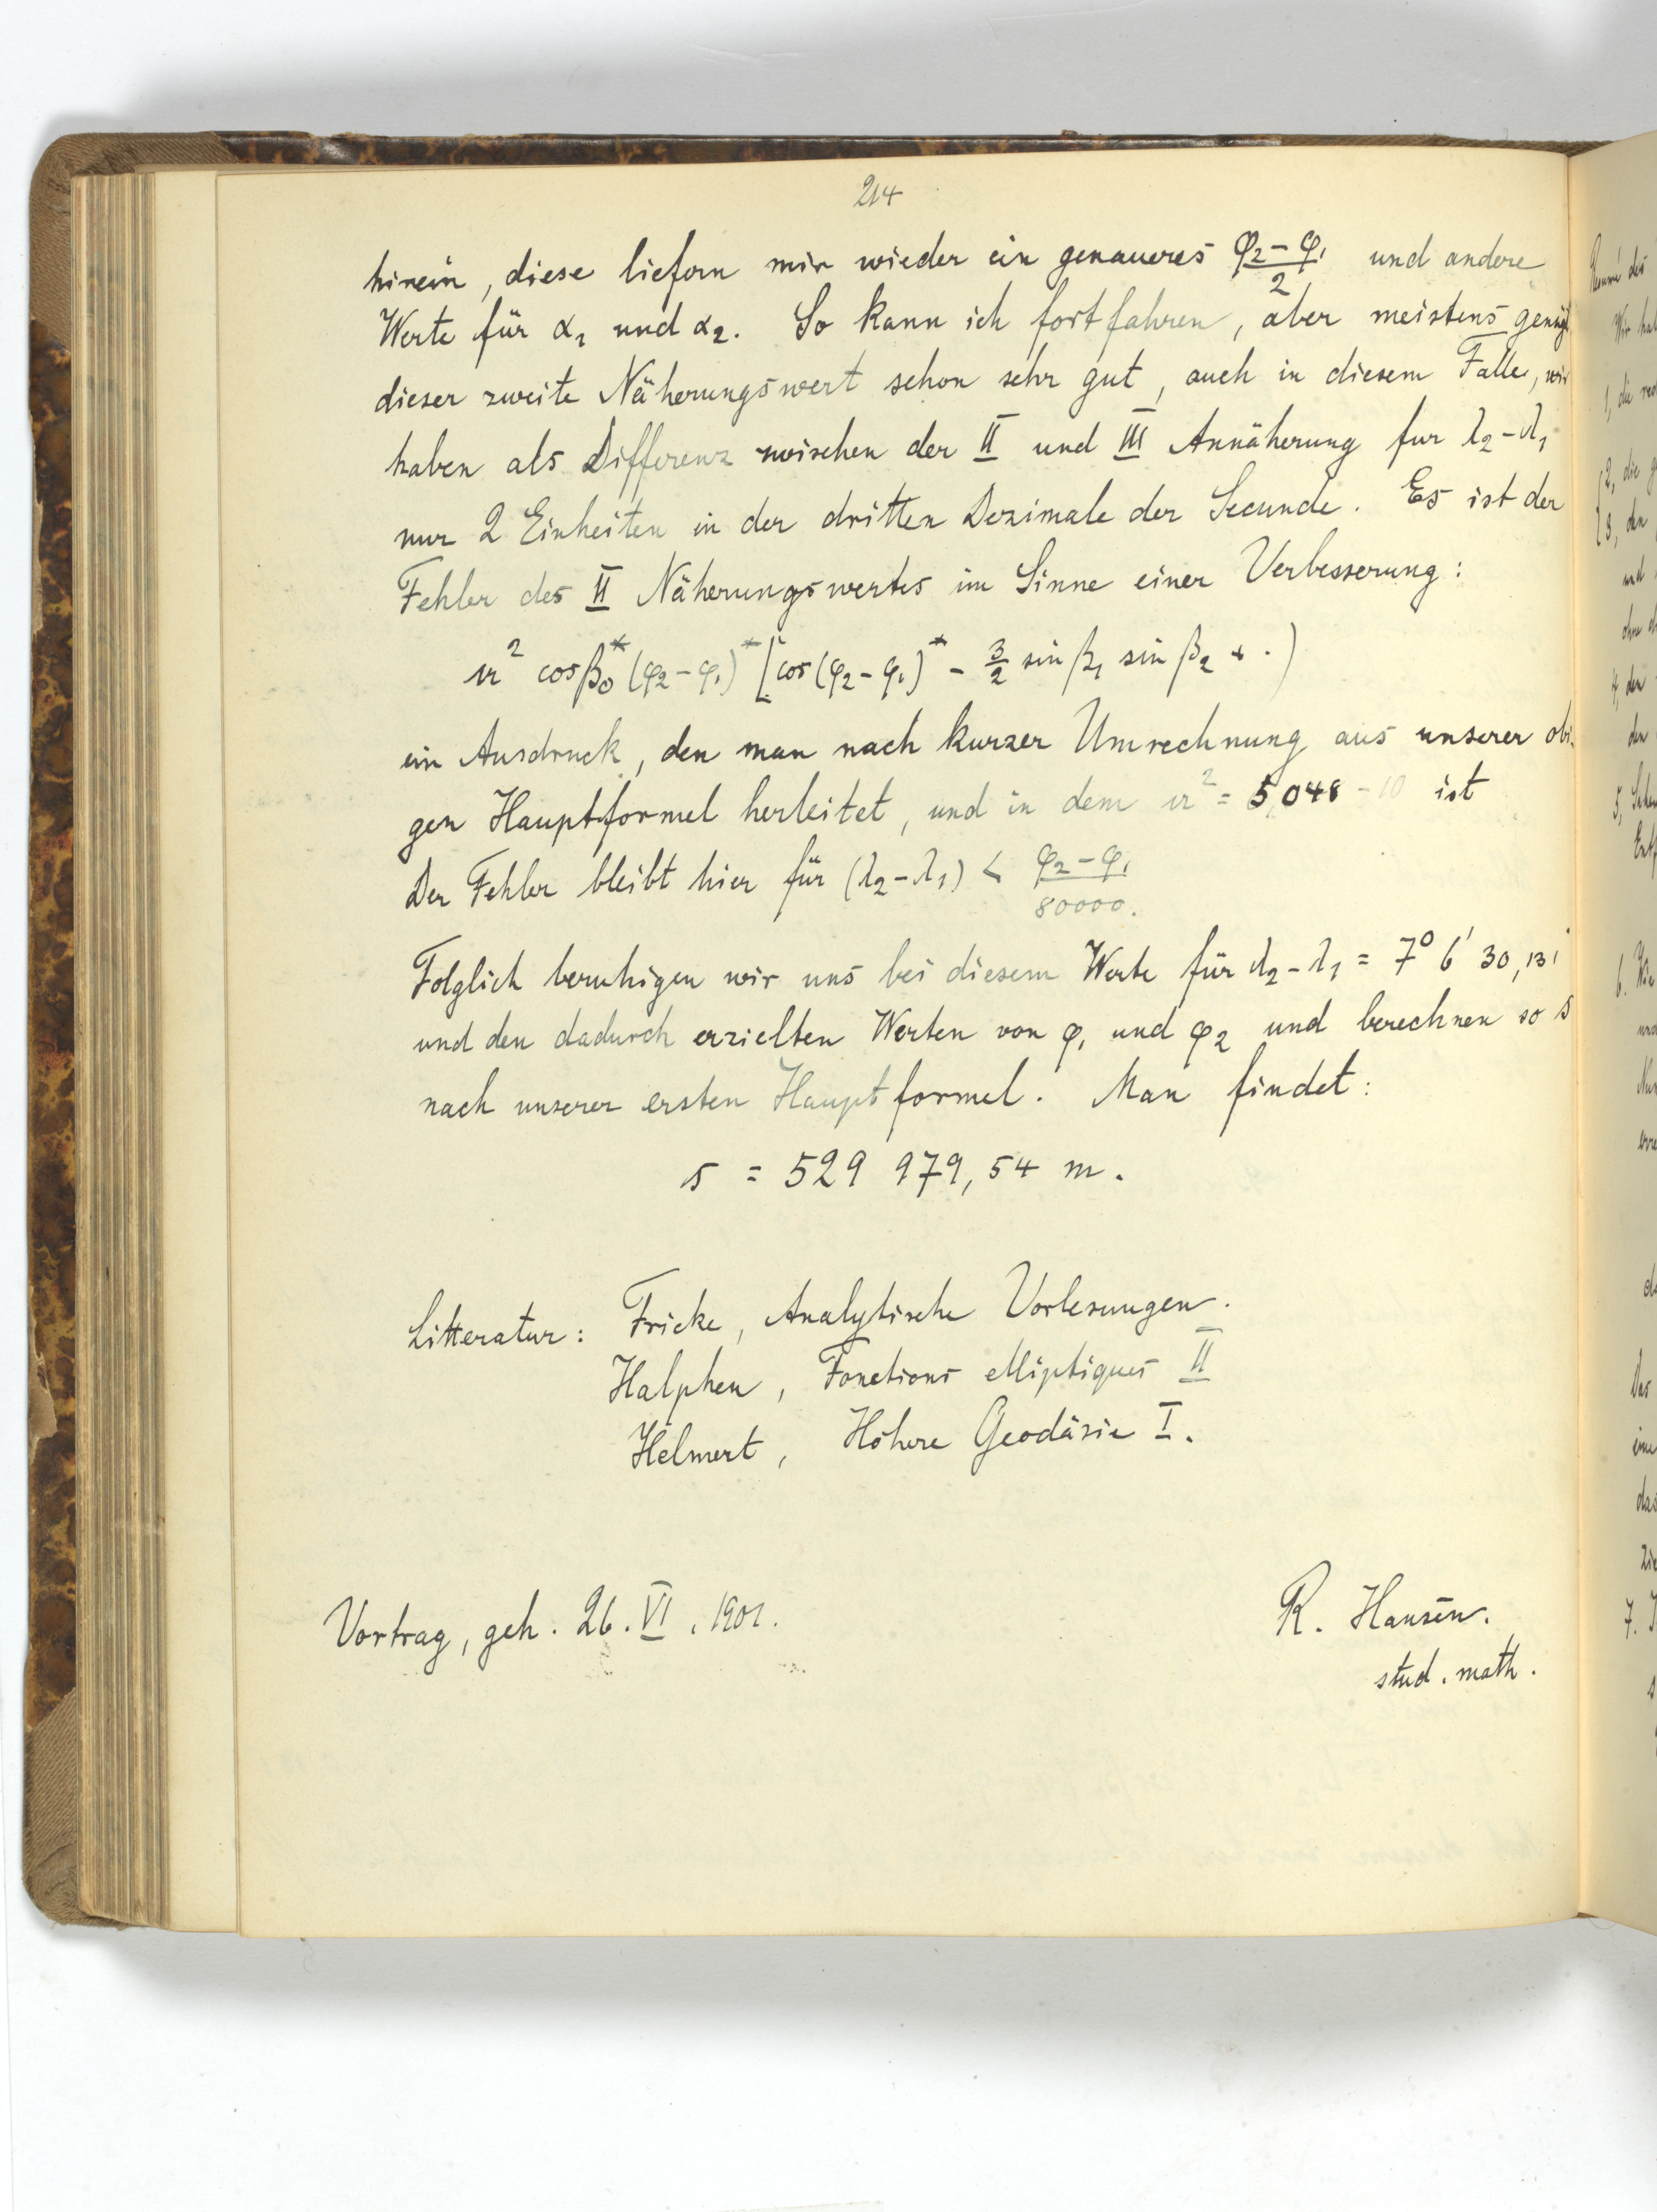 214
hinein, diese liefern mir wieder ein genaueres (φ₂ - φ₁)/2 und andere
Werte für α₁ und α₂. So kann ich fortfahren, aber meistens genügt
dieser zweite Näherungswert schon sehr gut, auch in diesem Falle, wir
haben als Differenz zwischen der II und III Annäherung fur λ₂-λ₁
nur 2 Einheiten in der dritten Dezimale der Secunde. Es ist der
Fehler des II Näherungswertes im Sinne einer Verbesserung:
² cosβ₀* (φ₂-φ₁)* [cos(φ₂-φ₁)* - 3/2 sin β₁ sin β₂ + ·)
ein Ausdruck, den man nach kurzer Umrechnung aus unserer obi-
gen Hauptformel herleitet, und in dem ² = 5,048 - 10 ist
Der Fehler bleibt hier für (λ₂-λ₁) < (φ₂ - φ₁)/80000.
Folglich beruhigen wir uns bei diesem Werte für λ₂-λ₁ = 7° 6' 30,131
und den dadurch erzielten Werten von φ₁ und φ₂ und berechnen so s
nach unserer ersten Hauptformel. Man findet:
s = 529 979,54 m.
Litteratur: Fricke, Analytische Vorlesungen.
Halphen, Fonctions elliptiques II
Helmert, Höhere Geodäsie I.
Vortrag, geh. 26. VI. 1901.
R. Hansen.
stud. math.